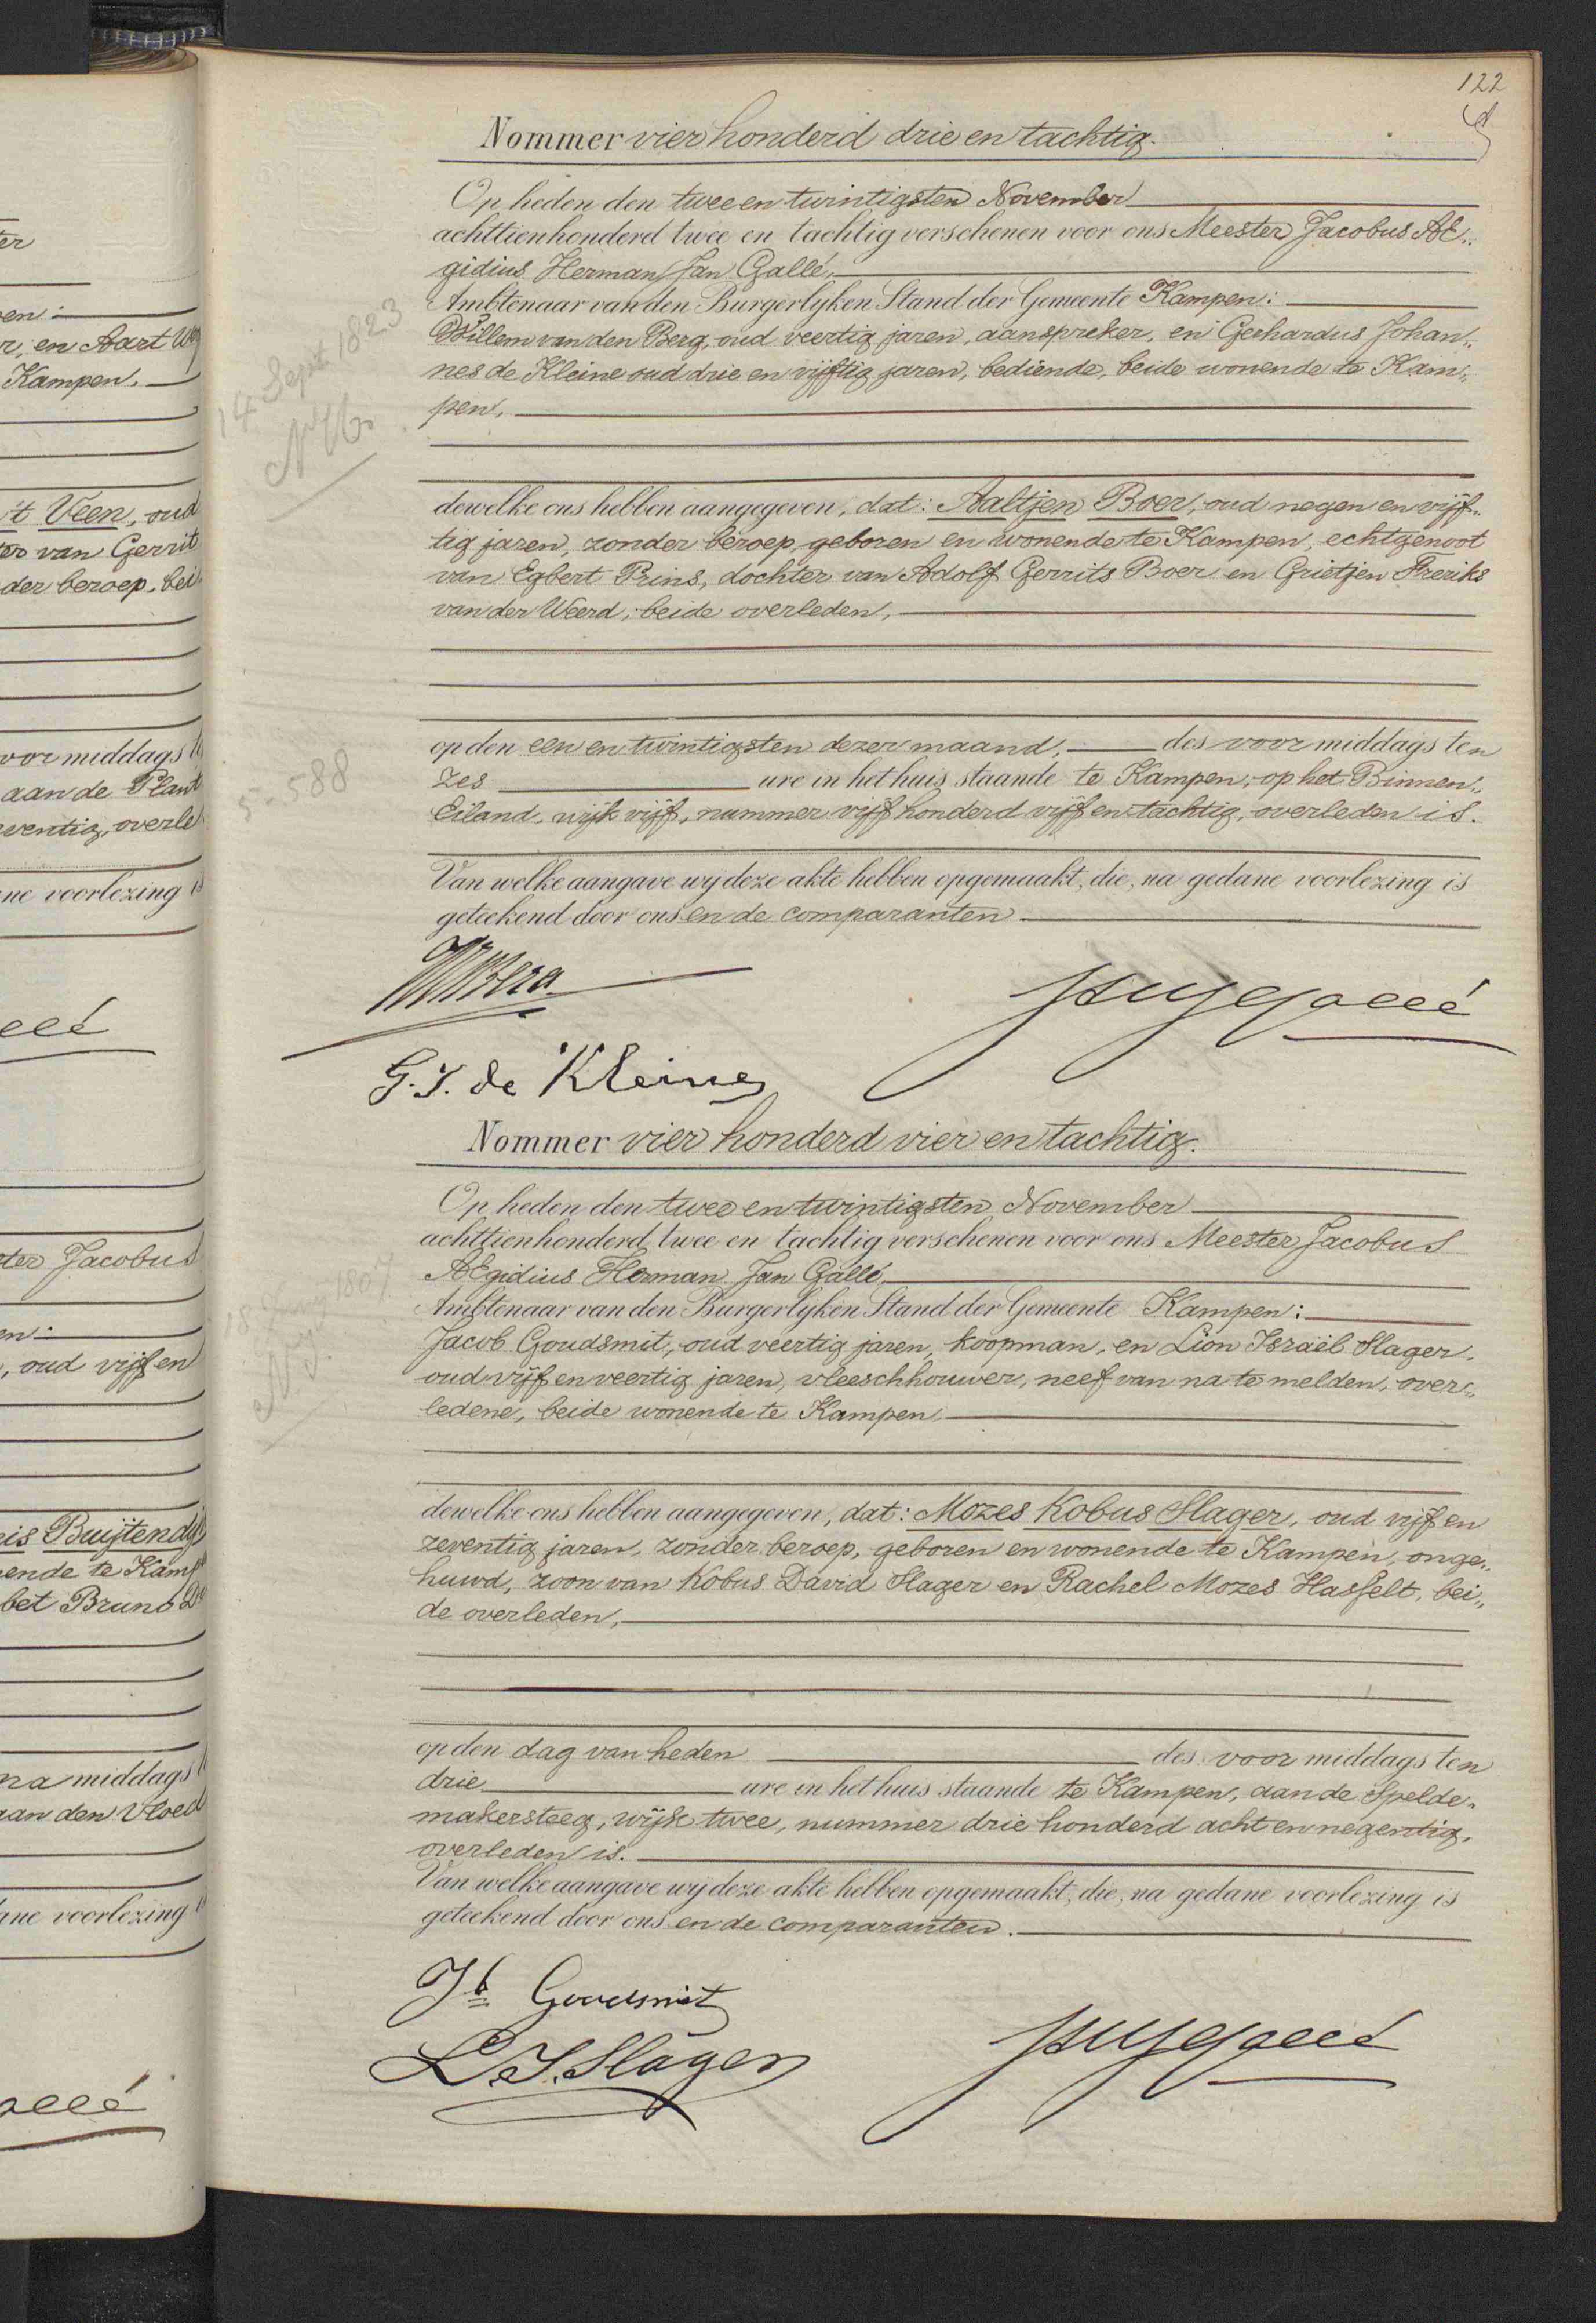 122
Nommer vier honderd drie en tachtig.
Op heden den twee en twintigsten November
achttienhonderd twee en tachtig verschenen voor ons Meester Jacobus AE„
gidius Herman Jan Gallé,
Ambtenaar van den Burgerlyken Stand der Gemeente Kampen:
Willem van den Berg, oud veertig jaren, aanspreker, en Gerhardus Johan„
nes de Kleine oud drie en vijftig jaren, bediende, beide wonende te Kam„
pen,
14 Sept. 1823
dewelke ons hebben aangegeven, dat: Aaltjen Boer, oud negen en vijf„
tig jaren, zonder beroep, geboren en wonende te Kampen, echtgenoot
van Egbert Prins, dochter van Adolf Gerrits Boer en Grietjen Freriks
van der Weerd, beide overleden,
op den een en twintigsten dezer maand, des voor middags ten
zes ure in het huis staande te Kampen, op het Binnen„
Eiland, wijk vijf, nummer vijf honderd vijf en tachtig, overleden is.
5-588
Van welke aangave wy deze akte hebben opgemaakt, die, na gedane voorlezing is
geteekend door ons en de comparanten
WvdBerg
JAHJGallé
G. J. de Kleine
Nommer vier honderd vier en tachtig.
Op heden den twee en twintigsten November
achttienhonderd twee en tachtig verschenen voor ons Meester Jacobus
AEgidius Herman Jan Gallé,
Ambtenaar van den Burgerlyken Stand der Gemeente Kampen:
Jacob Goudsmit, oud veertig jaren, koopman, en Lion Israël Slager,
oud vijf en veertig jaren, vleeschhouwer, neef van na te melden, over„
ledene, beide wonende te Kampen
dewelke ons hebben aangegeven, dat: Mozes Kobus Slager, oud vijf en
zeventig jaren, zonder beroep, geboren en wonende te Kampen, onge„
huwd, zoon van Kobus David Slager en Rachel Mozes Hasselt, bei„
de overleden,
op den dag van heden des voor middags ten
drie ure in het huis staande te Kampen, aan de Spelde„
makersteeg, wijk twee, nummer drie honderd acht en negentig,
overleden is.
Van welke aangave wy deze akte hebben opgemaakt, die, na gedane voorlezing is
geteekend door ons en de comparanten.
Jb Goudsmit
L. I. Slager
JAHJGallé